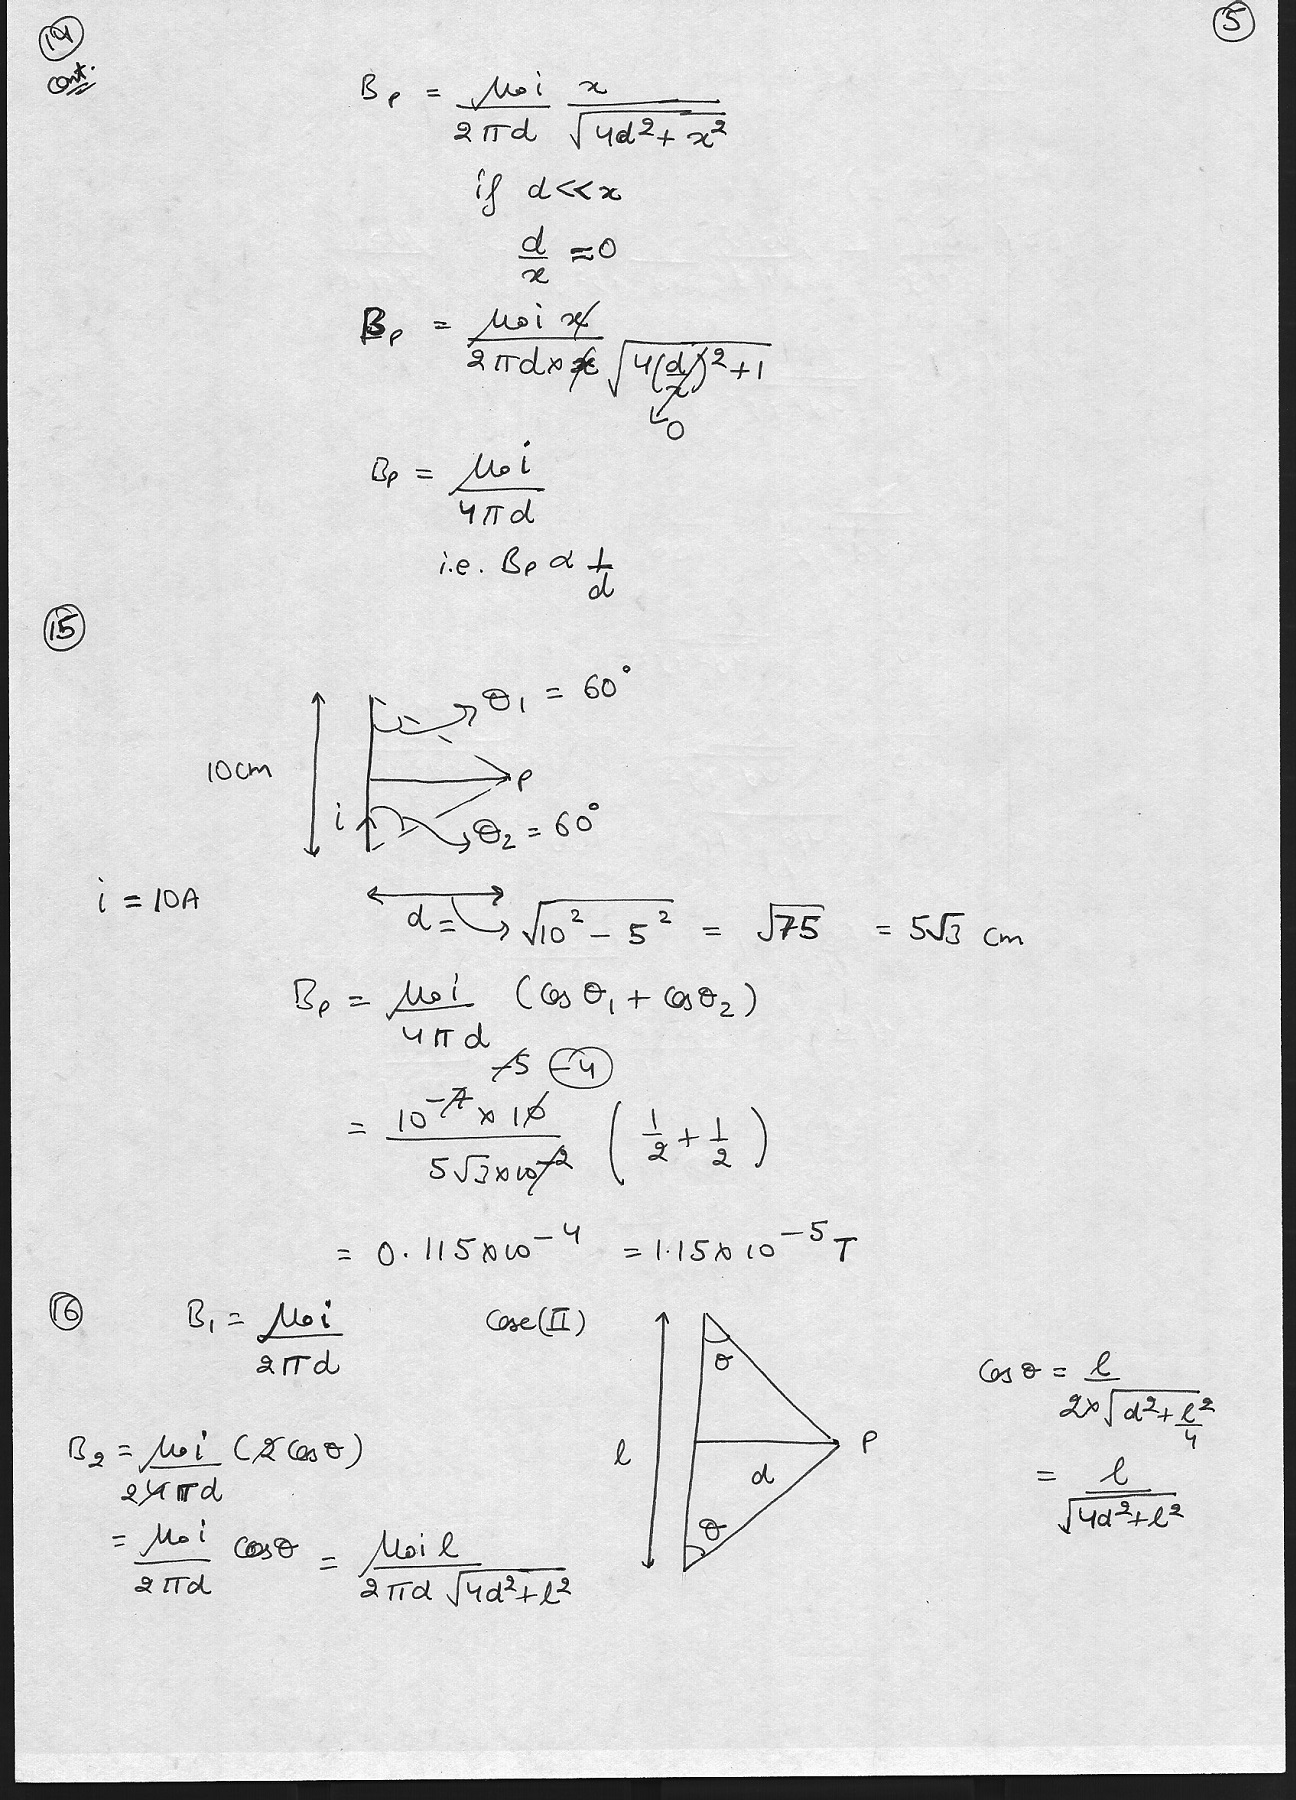 5
14
cont.
Bₚ = μ₀i / 2πd · x / √(4d² + x²)
if d << x
d/x ≈ 0
Bₚ = μ₀ i x / 2πd × x √(4(d/x)² + 1)
→ 0
Bₚ = μ₀ i / 4πd
i.e. Bₚ ∝ 1/d
15
θ₁ = 60°
10cm
P
i
θ₂ = 60°
i = 10A
d = √(10² − 5²) = √75 = 5√3 cm
Bₚ = μ₀i / 4πd (cosθ₁ + cosθ₂)
-5 -4
= 10⁻⁷ × 10 / 5√3 × 10⁻² (1/2 + 1/2)
= 0.115 × 10⁻⁴ = 1.15 × 10⁻⁵ T
16
B₁ = μ₀i / 2πd
Case (II)
θ
cosθ = l / 2 × √(d² + l²/4)
B₂ = μ₀i / 2 4πd (2cosθ)
l
d
P
= l / √(4d² + l²)
θ
= μ₀i / 2πd cosθ = μ₀i l / 2πd √(4d² + l²)